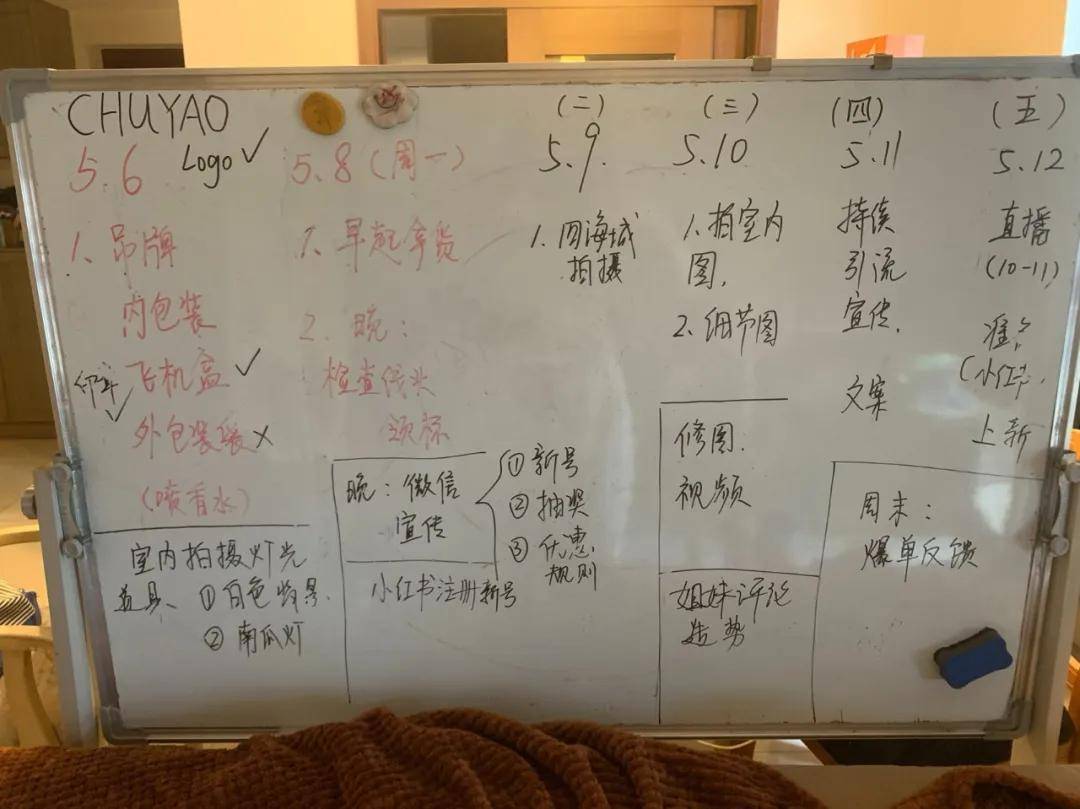 CHUYAO
5.6 Logo ✓
1. 吊牌
内包装
飞机盒 ✓
外包装袋 ×
(喷香水)
室内拍摄灯光
道具、① 白色背景.
② 南瓜灯
5.8 (周一)
1. 早起拿货
2. 晚：
检查线头
领标
晚：微信
宣传
① 新号
② 抽奖
③ 优惠
规则
小红书注册新号
(二)
5.9.
1. 四海城
拍摄
(三)
5.10
1. 拍室内
图.
2. 细节图
修图.
视频
姐妹评论
造势
(四)
5.11
持续
引流
宣传.
文案
(五)
5.12
直播
(10-11)
准备
(小红书.
上新
周末：
爆单反馈